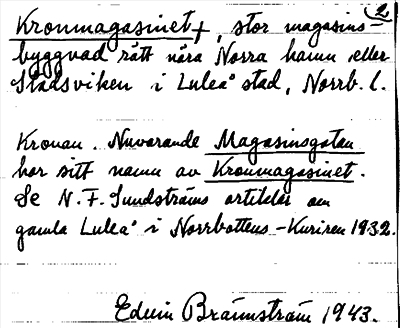 2
Kronmagasinet †, stor magasins-
byggnad rätt nära Norra hamn eller
Stadsviken i Luleå stad, Norrb. l.
Kronan. Nuvarande Magasinsgatan
har sitt namn av Kronmagasinet.
Se N. F. Sundströms artiklar om
gamla Luleå i Norrbottens-Kuriren 1932.
Edvin Brännström 1943.